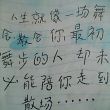 人生就像一场舞
会教会你最初
舞步的人却未
必能陪你走到
散场……